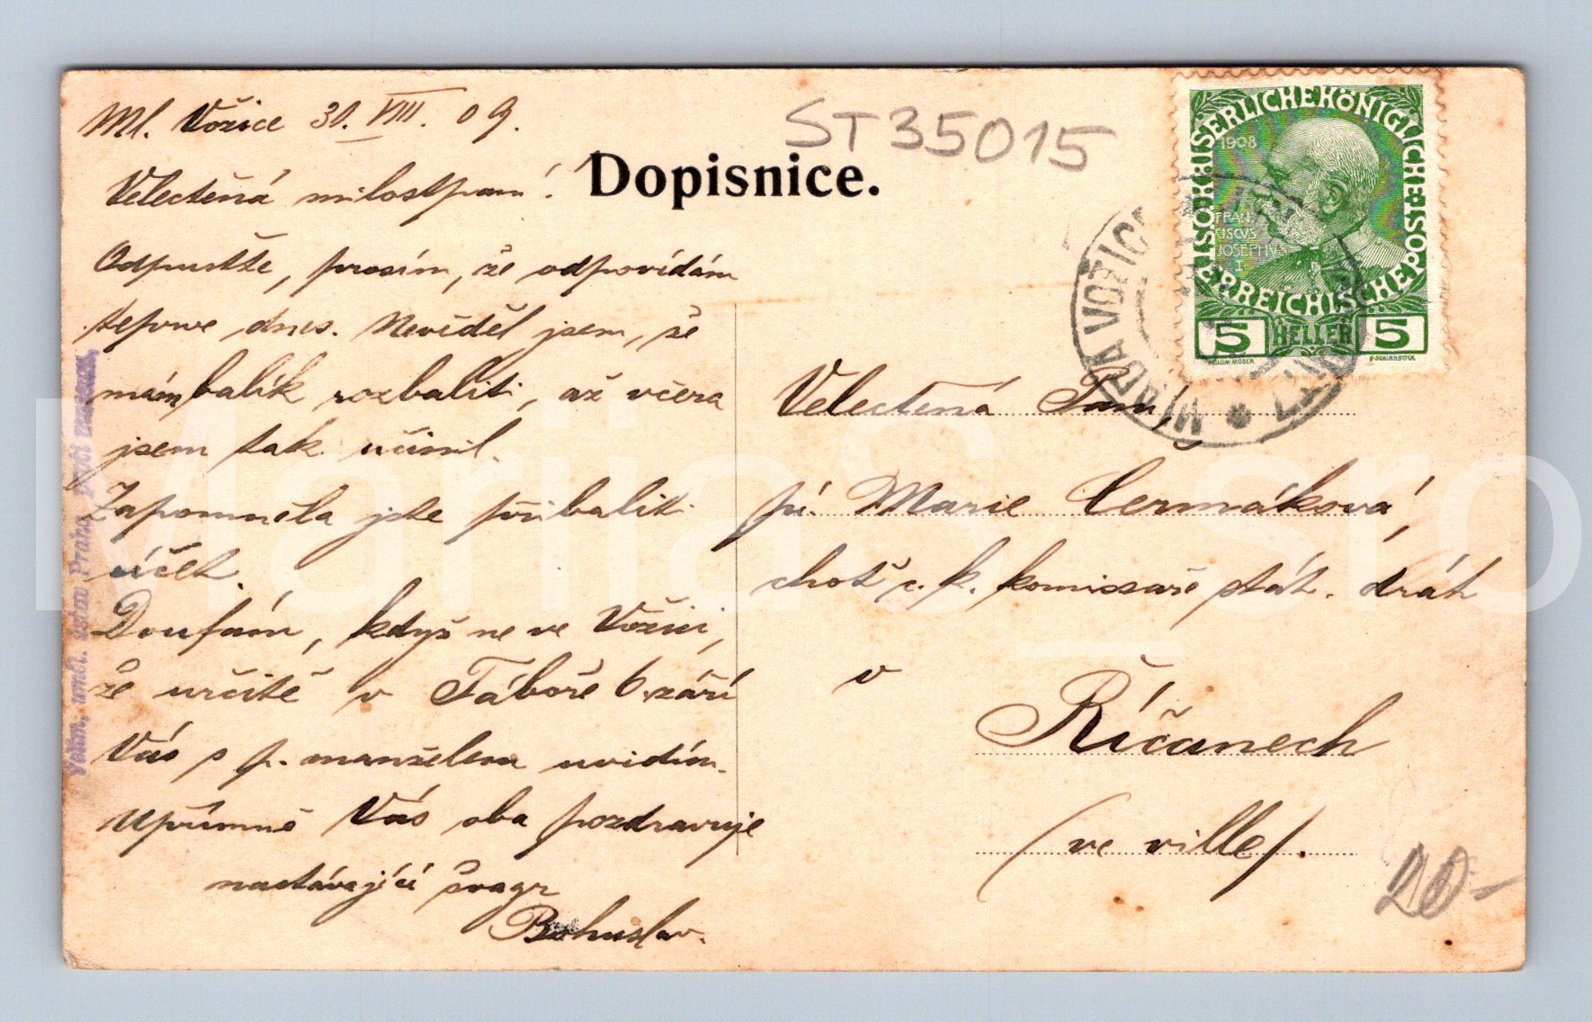 Ml. Vožice 30. VIII. 09.
Velectěná milostpaní!
Odpusťte, prosím, že odpovídám
teprve dnes. Nevěděl jsem, že
mám balík rozbaliti, až včera
jsem tak učinil.
Zapomněla jste přibaliti
účet.
Doufám, když ne ve Vožici,
že určitě v Táboře 6. září
Vás s p. manželem uvidím.
Upřímně Vás oba pozdravuje
nastávající švagr
Bohuslav.
Dopisnice.
ST35015
KAISERLICHEKÖNIGLICHE
ÖSTERREICHISCHE POST
1908
FRAN
CISCUS
JOSEPHVS
I.
5 HELLER 5
MLADÁ VOŽICE
Velectěná Paní,
pí. Marie Čermáková,
choť c. k. komisaře stát. drah
v
Říčanech
(ve ville).
20-
uměl. ústav Praha
MartiaS_sro